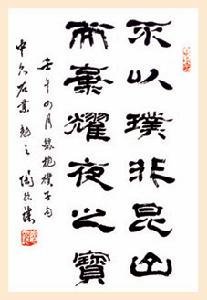 不以璞非昆山
而棄耀夜之寶
壬午四月錄抱樸子句